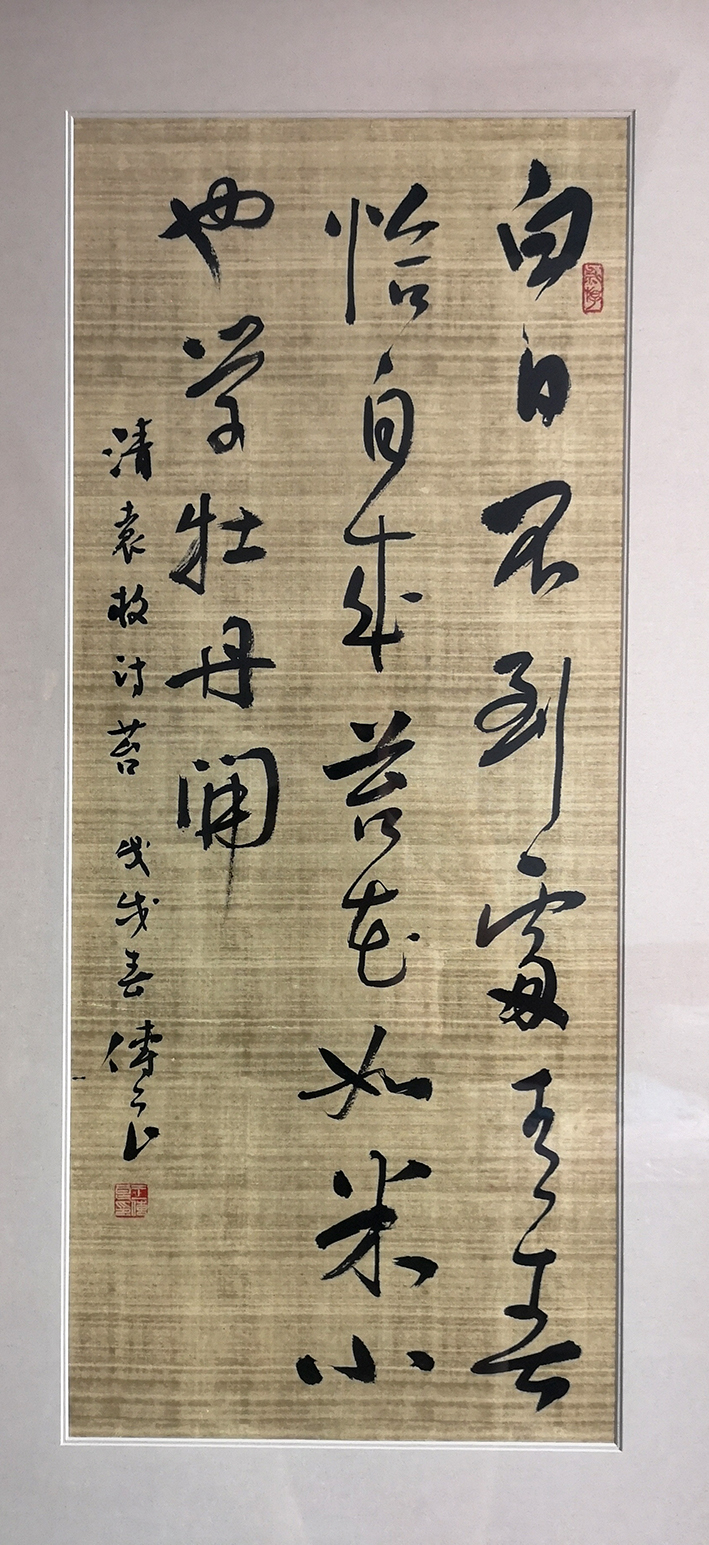 白日不到處青春
恰自來苔花如米小
也学牡丹開
清袁枚诗苔 戊戌春傅山